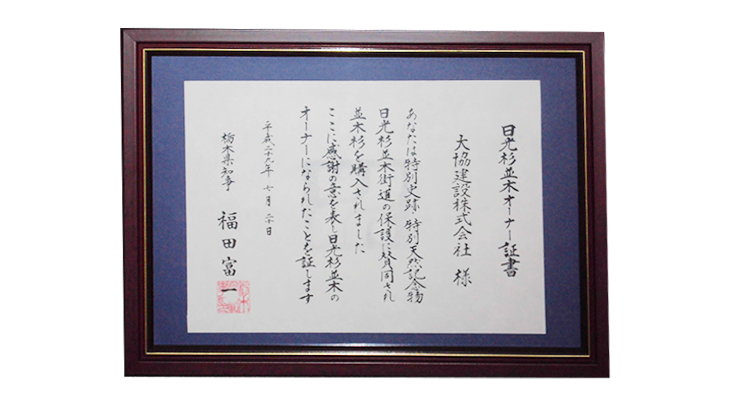 日光杉並木オーナー証書
大協建設株式会社 様
あなたは特別史跡・特別天然記念物
日光杉並木街道の保護に賛同され
並木杉を購入されました
ここに感謝の意を表し日光杉並木の
オーナーになられたことを証します
平成二十九年 七月 二十日
栃木県知事 福田富一